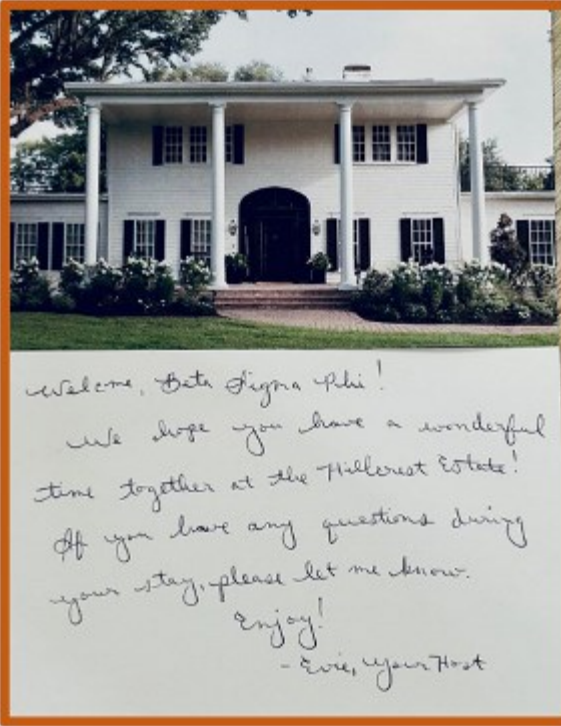 Welcome, Beta Sigma Phi!
We hope you have a wonderful
time together at the Hillcrest Estate!
If you have any questions during
your stay, please let me know.
Enjoy!
- Evie, your Host